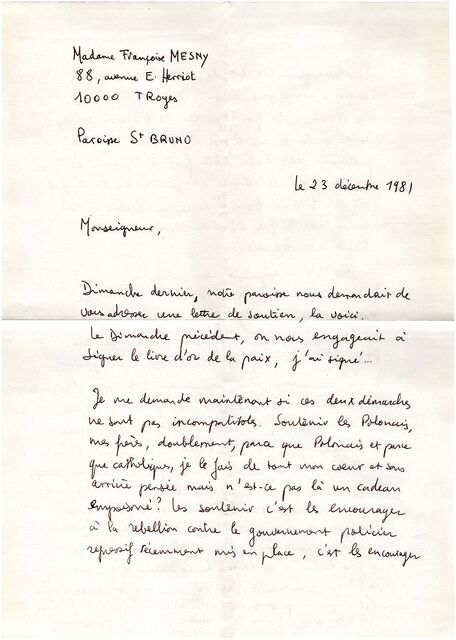 Madame Françoise MESNY
88, avenue E. Herriot
10000 TRoyes
Paroisse St BRUNO
le 23 décembre 1981
Monseigneur,
Dimanche dernier, notre paroisse nous demandait de
vous adresser une lettre de soutien, la voici.
Le Dimanche précédent, on nous engageait à
signer le livre d'or de la paix, j'ai signé...
Je me demande maintenant si ces deux démarches
ne sont pas incompatibles. Soutenir les Polonais,
mes frères, doublement, parce que Polonais et parce
que catholiques, je le fais de tout mon coeur et sans
arrière pensée mais n'est-ce pas là un cadeau
empoisonné? Les soutenir c'est les encourager
à la rebellion contre le gouvernement policier
repressif récemment mis en place, c'est les encourager